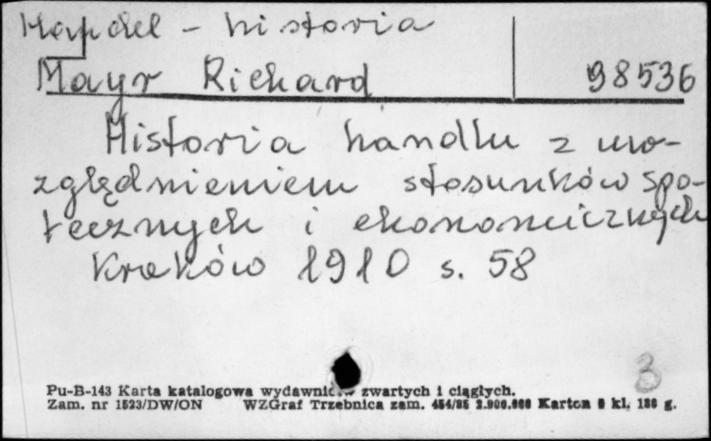 Handel - historia
Mayr Richard 98536
Historia handlu z uw-
zględnieniem stosunków spo-
łecznych i ekonomicznych
Kraków 1910 s. 58
3
Pu-B-143 Karta katalogowa wydawnictw zwartych i ciągłych.
Zam. nr 1523/DW/ON WZGraf Trzebnica zam. 454/85 2.900.000 Karton kl. g.